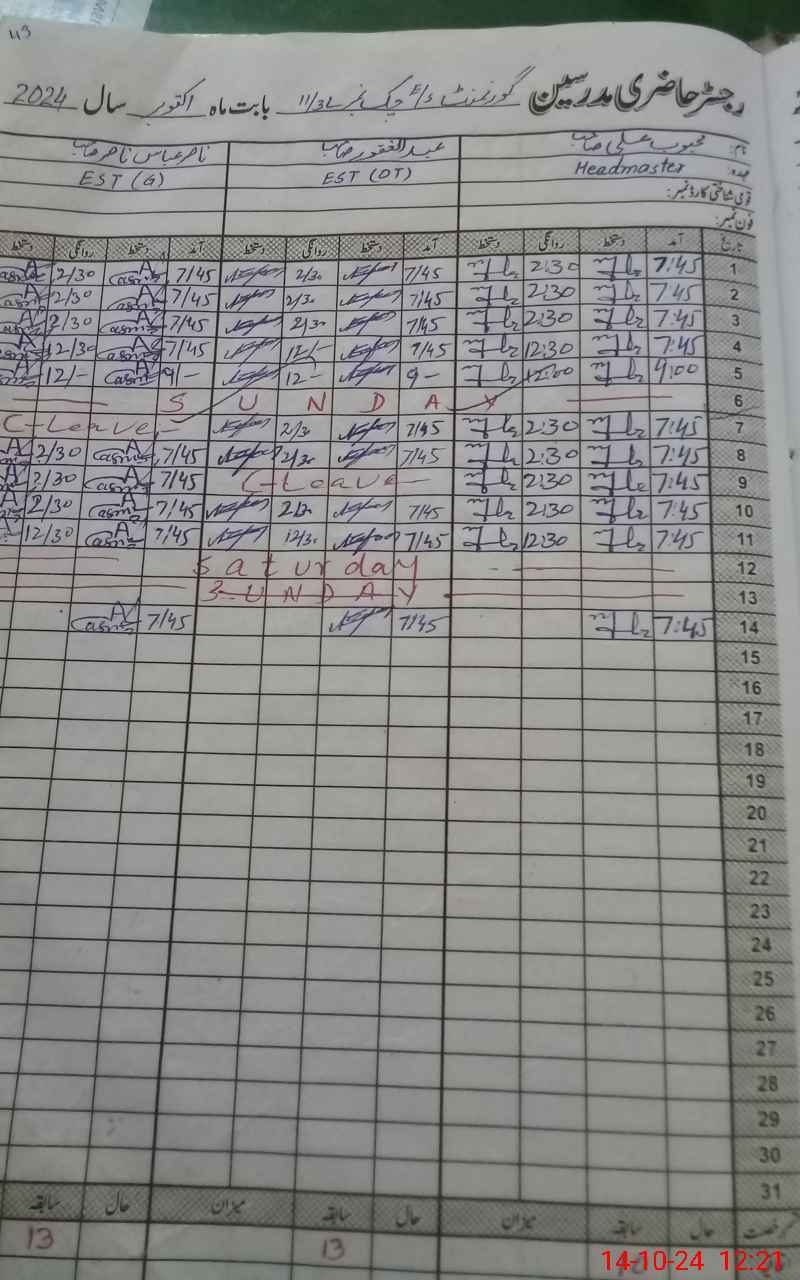 113
رجسٹر حاضری مدرسین گورنمنٹ چک نمبر 11/3L بابت ماہ اکتوبر سال 2024
نام: محبوب علی صاحب عبدالغفور صاحب ناصر عباس ناصر صاحب
عہدہ: Headmaster EST (OT) EST (G)
قومی شناختی کارڈ نمبر:
فون نمبر:
تاریخ آمد دستخط روانگی دستخط آمد دستخط روانگی دستخط آمد دستخط روانگی دستخط
1 7:45 2:30 7/45 2/30 7/45 2/30
2 7:45 2:30 7/45 2/30 7/45 2/30
3 7:45 2:30 7/45 2/30 7/45 2/30
4 7:45 12:30 7/45 7/45 12/30
5 9:00 12:00 9- 12- 9/- 12/-
6 SUNDAY
7 7:45 2:30 7/45 2/30 C-Leave
8 7:45 2:30 7/45 2/30 7/45 2/30
9 7:45 2:30 C-Leave 7/45 2/30
10 7:45 2:30 7/45 7/45 2/30
11 7:45 12:30 7/45 12/30 7/45 12/30
12 Saturday
13 SUNDAY
14 7:45 7/45 7/45
15
16
17
18
19
20
21
22
23
24
25
26
27
28
29
30
31
رخصت حال سابقہ میزان حال سابقہ میزان حال سابقہ
13 13
14-10-24 12:21